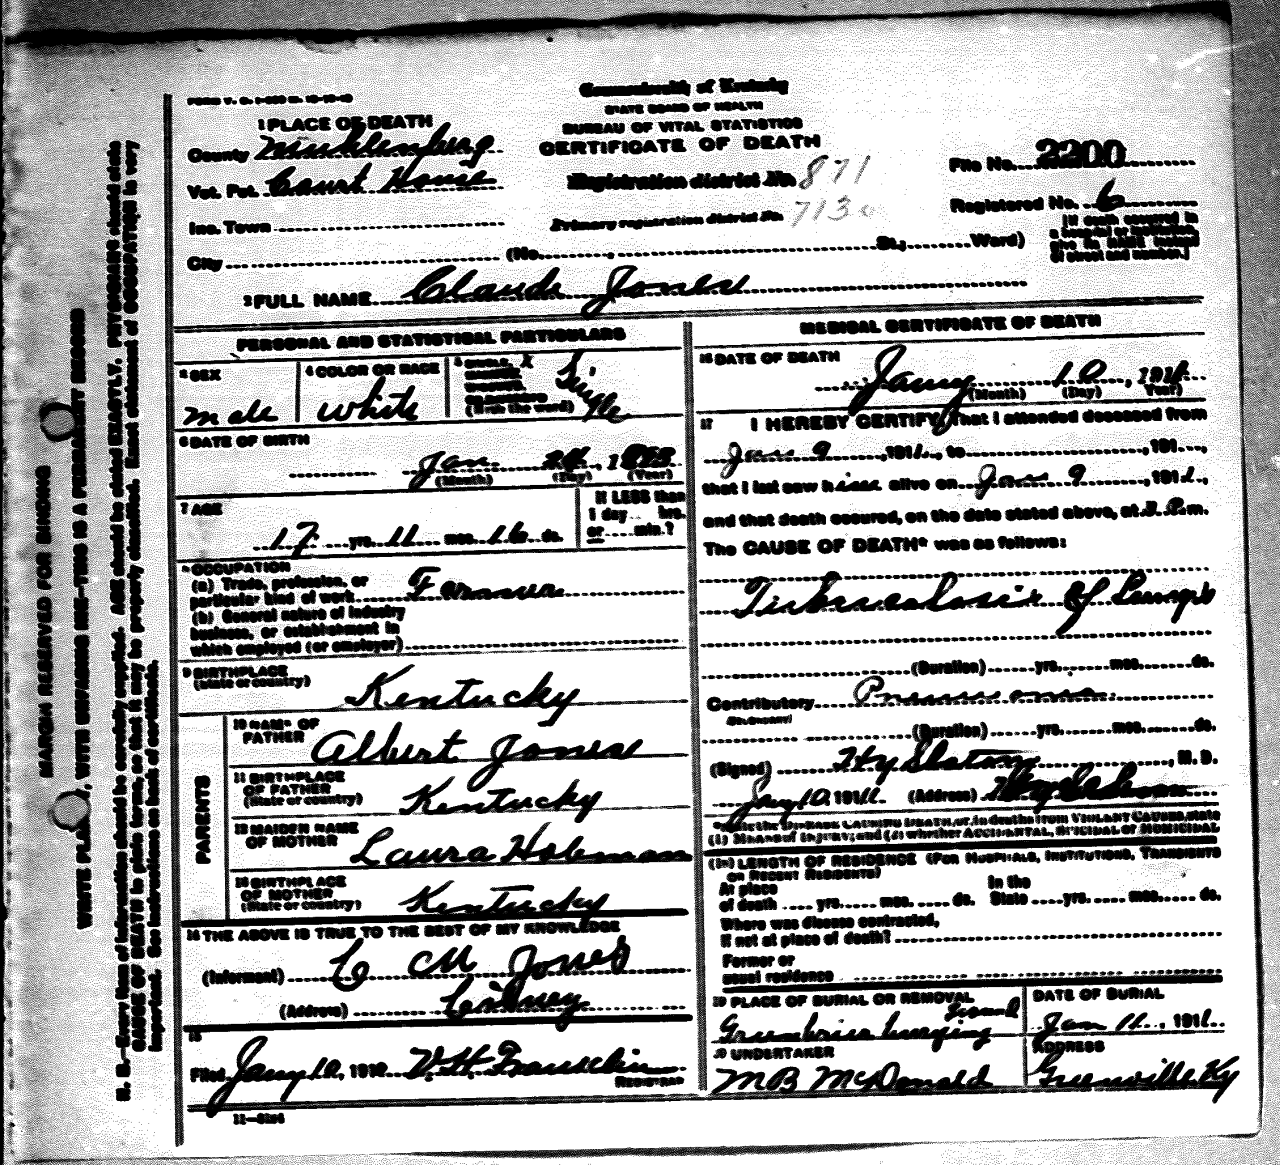 Commonwealth of Kentucky
STATE BOARD OF HEALTH
BUREAU OF VITAL STATISTICS
CERTIFICATE OF DEATH
1 PLACE OF DEATH
County Muhlenburg
Vot. Pct. Court House
Inc. Town
City (No. St.; Ward)
Registration district No. 871
Primary registration district No. 7130
File No. 2200
Registered No. 6
[If death occurred in
a hospital or institution,
give its NAME instead
of street and number.]
2 FULL NAME Claude Jones
PERSONAL AND STATISTICAL PARTICULARS
3 SEX
male
4 COLOR OR RACE
white
5 SINGLE, X
(Write the word)
Single
6 DATE OF BIRTH
Jan.
(Month) (Day) (Year)
7 AGE
17 yrs. 11 mos. 16 ds.
If LESS than
1 day hrs.
or min.?
8 OCCUPATION
(a) Trade, profession, or
particular kind of work Farmer
(b) General nature of industry
business, or establishment in
which employed (or employer)
9 BIRTHPLACE
(State or country)
Kentucky
PARENTS
10 NAME OF
FATHER
Albert Jones
11 BIRTHPLACE
OF FATHER
(State or country)
Kentucky
12 MAIDEN NAME
OF MOTHER
Laura Holeman
13 BIRTHPLACE
OF MOTHER
(State or country)
Kentucky
14 THE ABOVE IS TRUE TO THE BEST OF MY KNOWLEDGE
(Informant) CM Jones
(Address)
15
Filed Jany 10, 191 V. H. Franklin
REGISTRAR
11-3184
MEDICAL CERTIFICATE OF DEATH
16 DATE OF DEATH
Jany 10, 191
(Month) (Day) (Year)
17 I HEREBY CERTIFY, That I attended deceased from
Jan 9, 1911, to , 191 ,
that I last saw him alive on Jan 9, 1911,
and that death occured, on the date stated above, at 3 P.m.
The CAUSE OF DEATH* was as follows:
Tuberculosis of Lungs
(Duration) yrs. mos. ds.
Contributory Pneumonia
(Duration) yrs. mos. ds.
(Signed) Slaton, M. D.
Jany 10 1911 (Address)
*State the DISEASE CAUSING DEATH, or, in deaths from VIOLENT CAUSES, state
(1) MEANS OF INJURY; and (2) whether ACCIDENTAL, SUICIDAL or HOMICIDAL
(18) LENGTH OF RESIDENCE (FOR HOSPITALS, INSTITUTIONS, TRANSIENTS
OR RECENT RESIDENTS)
At place In the
of death yrs. mos. ds. State yrs. mos. ds.
Where was disease contracted,
If not at place of death?
Former or
usual residence
19 PLACE OF BURIAL OR REMOVAL
Greenbrier burying Ground
DATE OF BURIAL
Jan 11, 1911
20 UNDERTAKER
M B McDonald
ADDRESS
Greenville Ky
MARGIN RESERVED FOR BINDING
WRITE PLAINLY, WITH UNFADING INK—THIS IS A PERMANENT RECORD
N. B.—Every item of information should be carefully supplied. AGE should be stated EXACTLY. PHYSICIANS should state
CAUSE OF DEATH in plain terms, so that it may be properly classified. Exact statement of OCCUPATION is very
important. See instructions on back of certificate.